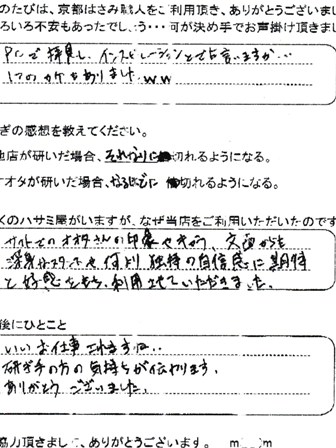 のたびは、京都はさみ職人をご利用頂き、ありがとうございまし
ろいろ不安もあったでしょう・・・何が決め手でお声掛け頂きまし
PCで拝見し、インスピレーションとでも言いますか…
1つのカケもありました ww
ぎの感想を教えてください。
他店が研いだ場合、それなりに切れるようになる。
オタが研いだ場合、なるほどに切れるようになる。
くのハサミ屋がいますが、なぜ当店をご利用いただいたのです
サイトでのオオタさんの印象やきめ、文面からも
何より 独特の自信感に期待
と好感をもち、利用させていただきました。
後にひとこと
いいお仕事されますね..
研ぎ手の方の気持ちが伝わります。
ありがとう ございました。
協力頂きまして、ありがとうございます。 m m